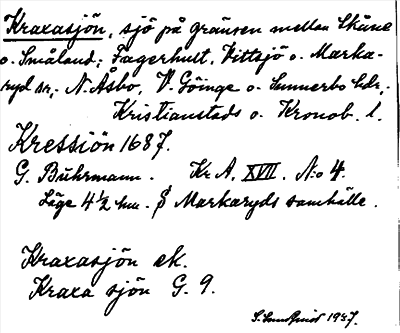 Kraxasjön, sjö på gränsen mellan Skåne
o. Småland; Fagerhult, Vittsjö o. Marka-
ryd sn; N. Åsbo, V. Göinge o. Sunnerbo hdr;
Kristianstads o. Kronob. l.
Kressiön 1687.
G. Buhrmann. Kr A. XVII. N:o 4.
Läge 4 1/2 km. S Markaryds samhälle.
Kraxasjön ek.
Kraxa sjön G. 9.
S. Sundquist 1937.